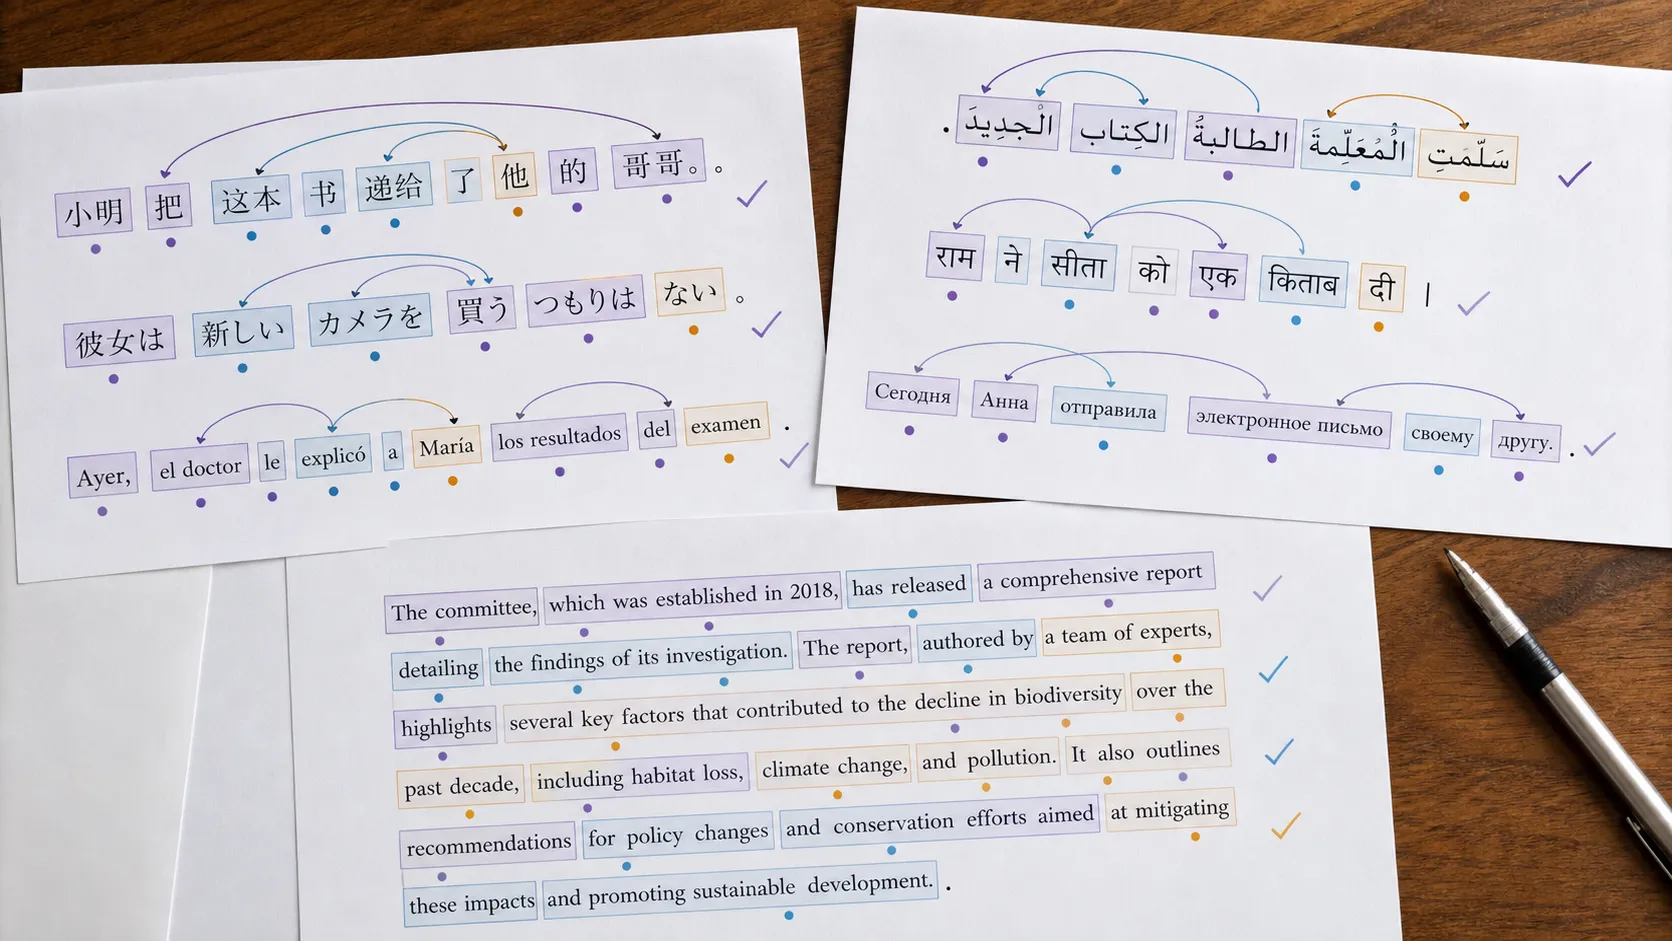 小明 把 这本 书 递给 了 他 的 哥哥。。
彼女は 新しい カメラを 買う つもりは ない 。
Ayer, el doctor le explicó a María los resultados del examen .
سَلّمَتِ الْمُعَلِّمةَ الطالبةُ الكِتاب الْجدِيدَ .
राम ने सीता को एक किताब दी ।
Сегодня Анна отправила электронное письмо своему другу. .
The committee, which was established in 2018, has released a comprehensive report
detailing the findings of its investigation. The report, authored by a team of experts,
highlights several key factors that contributed to the decline in biodiversity over the
past decade, including habitat loss, climate change, and pollution. It also outlines
recommendations for policy changes and conservation efforts aimed at mitigating
these impacts and promoting sustainable development. .